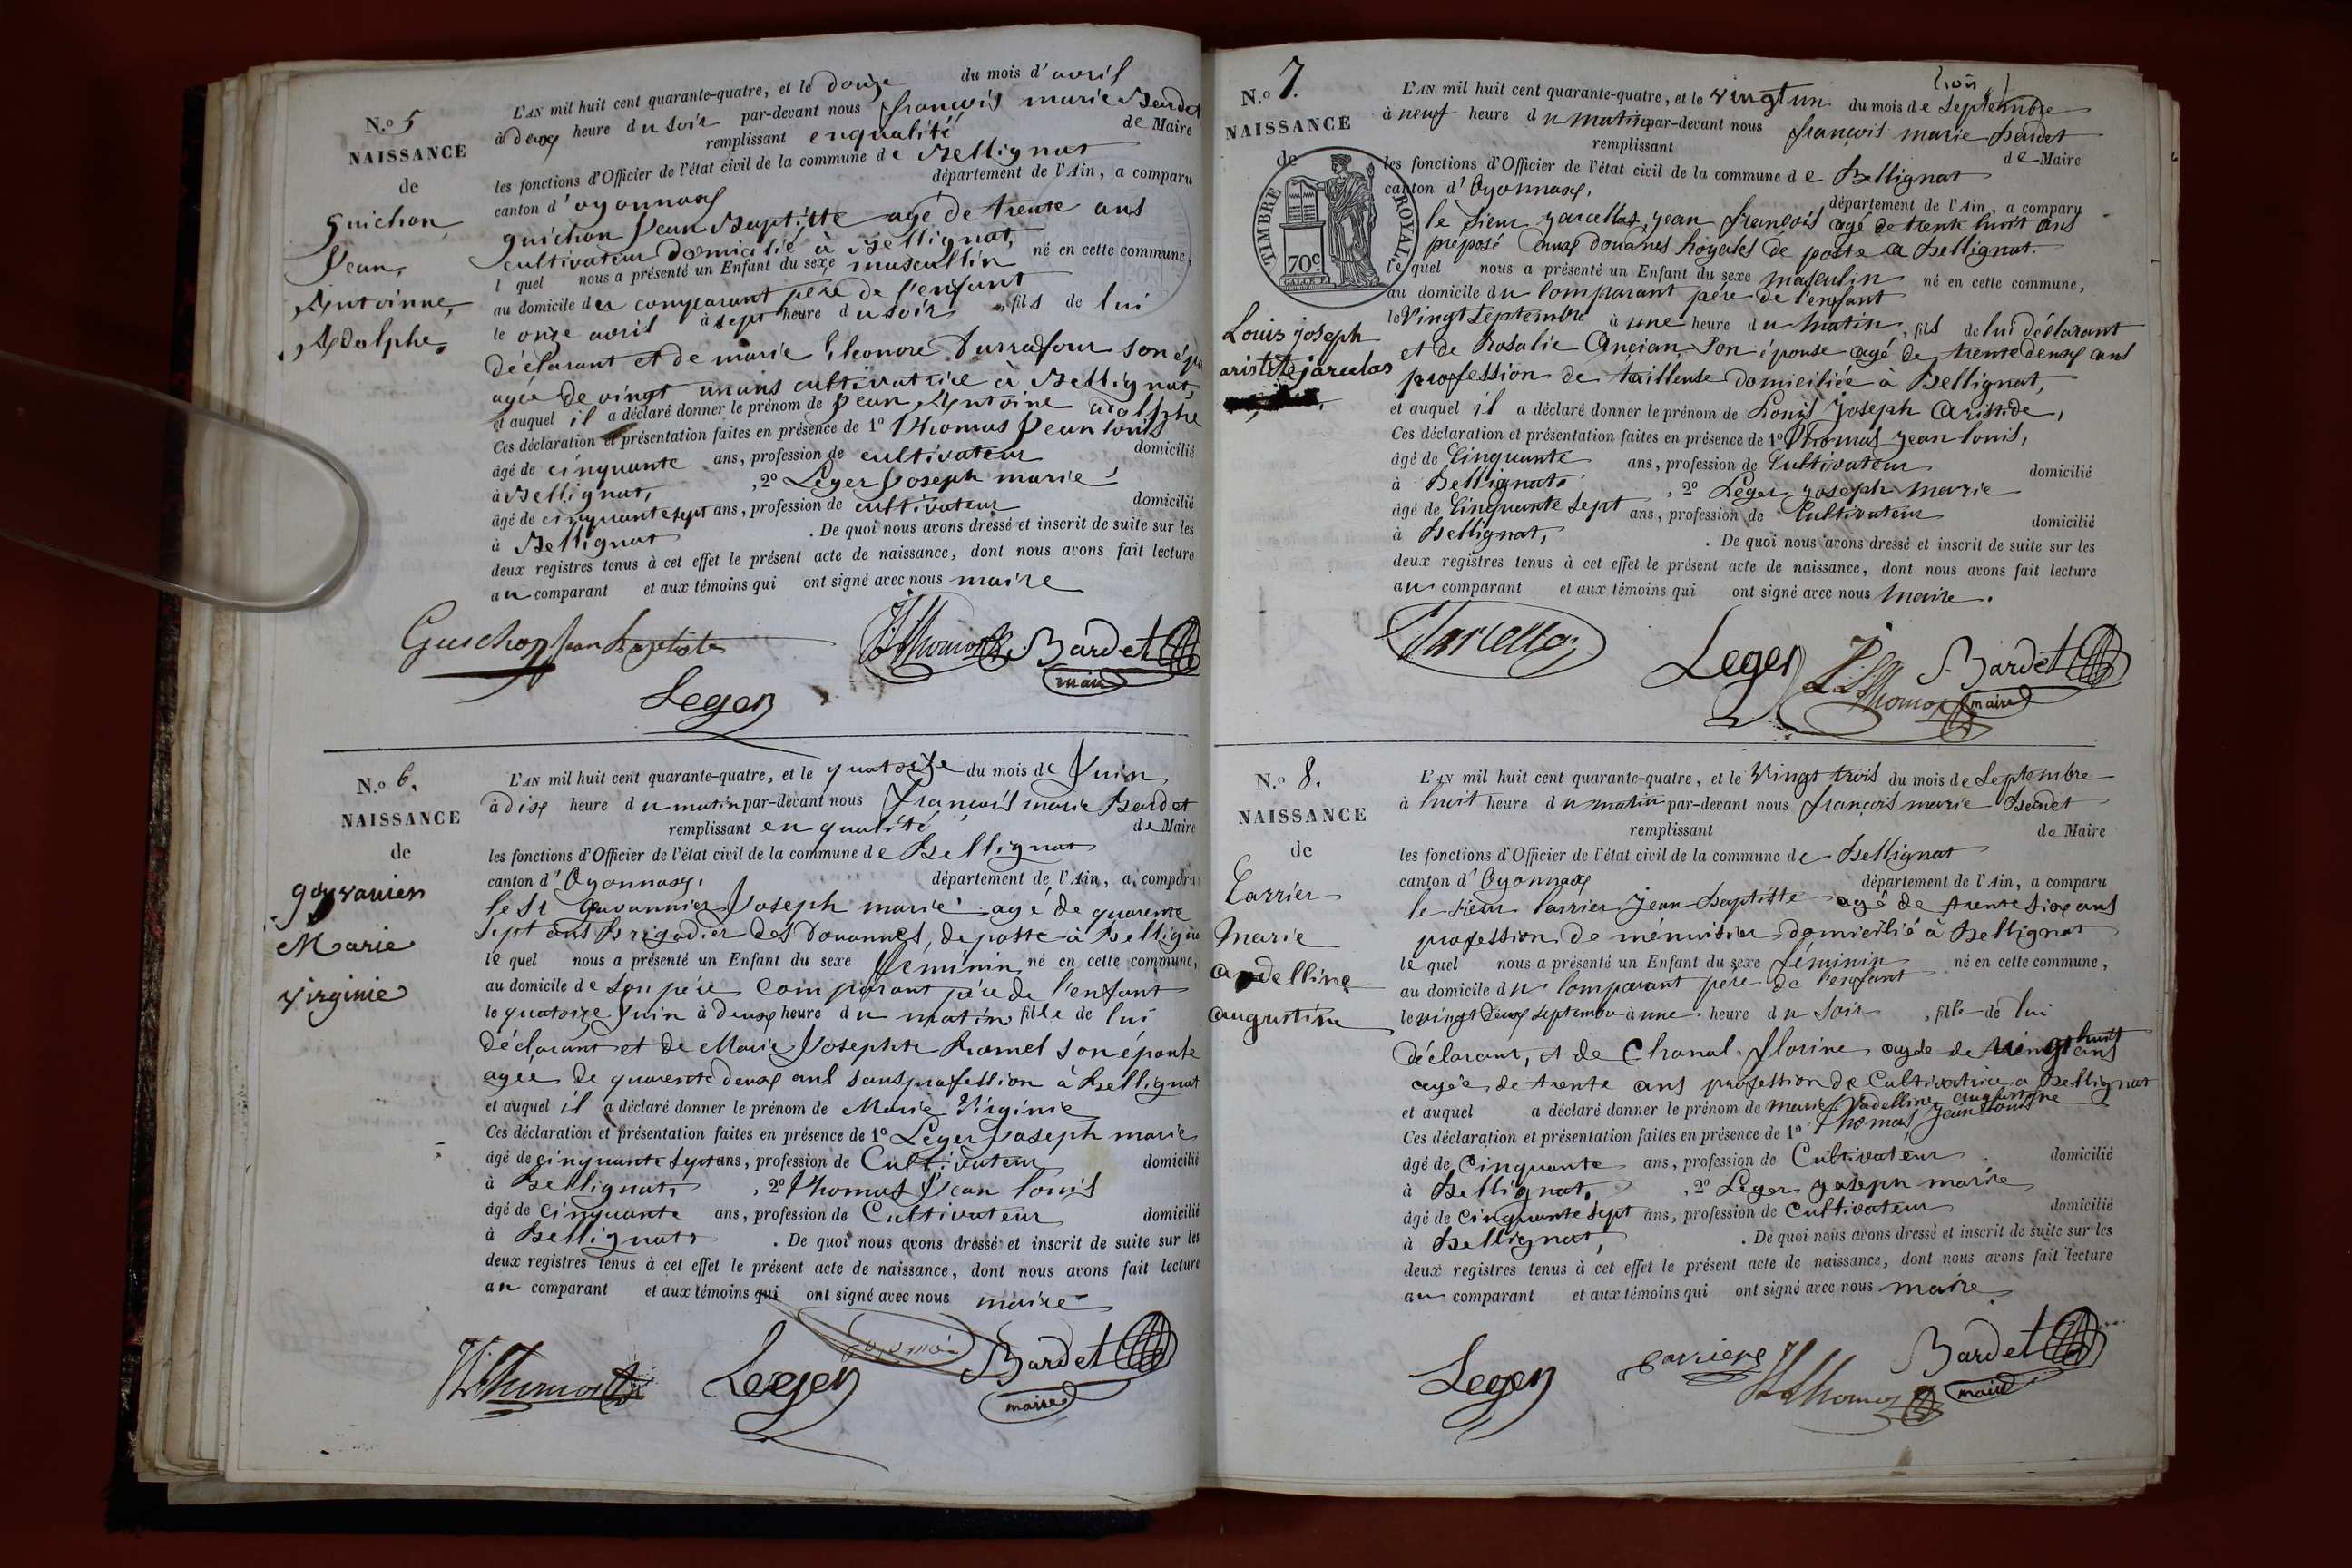 N.o 5
NAISSANCE
de
Guichon
Jean,
Antoinne,
Adolphe,
L'AN mil huit cent quarante-quatre, et le douze du mois d'avril
à deux heure du soir par-devant nous françois marie Bardet
remplissant enqualité de Maire
les fonctions d'Officier de l'état civil de la commune de Bellignat
canton d'oyonnax département de l'Ain, a comparu
guichon Jean Baptiste agé de trente ans
cultivateur domicilié à Bellignat,
l quel nous a présenté un Enfant du sexe masculin né en cette commune,
au domicile du comparant père de l'enfant
le onze avril à sept heure du soir, fils de lui
déclarant et de marie Eleonore Durrafour son
agée de vingt unans cultivatrice à Bellignat,
et auquel il a déclaré donner le prénom de Jean Antoine adolphe
Ces déclaration et présentation faites en présence de 1º Thomas Jean louis
âgé de cinquante ans, profession de cultivateur domicilié
à Bellignat, , 2º Leger Joseph marie
âgé de cinquante sept ans, profession de cultivateur domicilié
à Bellignat . De quoi nous avons dressé et inscrit de suite sur les
deux registres tenus à cet effet le présent acte de naissance, dont nous avons fait lecture
au comparant et aux témoins qui ont signé avec nous maire
Guichon Jean Baptiste
JL Thomas
Bardet
maire
Leger
N.o 6.
NAISSANCE
de
Marie
Virginie
L'AN mil huit cent quarante-quatre, et le quatorze du mois de Juin
à dix heure du matin par-devant nous françois marie Bardet
remplissant en qualité de Maire
les fonctions d'Officier de l'état civil de la commune de Bellignat
canton d'Oyonnax, département de l'Ain, a comparu
le Sr Joseph marie agé de quarente
sept ans Brigadier des Douannes, de poste à Bellignat
le quel nous a présenté un Enfant du sexe feminin né en cette commune,
au domicile de son père comparant père de l'enfant
le quatorze Juin à deux heure du matin fille de lui
déclarant et de Marie Josephte Romel son épouse
agée de quarente deux ans sans profession à Bellignat
et auquel il a déclaré donner le prénom de Marie Virginie
Ces déclaration et présentation faites en présence de 1º Leger Joseph marie
âgé de cinquante sept ans, profession de Cultivateur domicilié
à Bellignat, , 2º Thomas Jean louis
âgé de cinquante ans, profession de Cultivateur domicilié
à Bellignat, . De quoi nous avons dressé et inscrit de suite sur les
deux registres tenus à cet effet le présent acte de naissance, dont nous avons fait lecture
au comparant et aux témoins qui ont signé avec nous maire
JL Thomas
Leger
Bardet
maire
N.o 7.
NAISSANCE
de
TIMBRE ROYAL
70c.
Louis joseph
aristide jarcelas
L'AN mil huit cent quarante-quatre, et le vingt un du mois de Septembre
à neuf heure du matin par-devant nous françois marie Bardet
remplissant de Maire
les fonctions d'Officier de l'état civil de la commune de Bellignat
canton d'Oyonnax, département de l'Ain, a comparu
le sieur jarcellas, jean françois agé de trente huit ans
préposé aux douanes Royales de poste a Bellignat.
le quel nous a présenté un Enfant du sexe masculin né en cette commune,
au domicile du comparant père de l'enfant
le vingt Septembre à une heure du matin, fils de lui déclarant
et de Rosalie Ancian Son épouse agé de trente deux ans
profession de tailleuse domiciliée à Bellignat,
et auquel il a déclaré donner le prénom de Louis Joseph Aristide,
Ces déclaration et présentation faites en présence de 1º Thomas jean louis,
âgé de Cinquante ans, profession de Cultivateur domicilié
à Bellignat , 2º Léger joseph marie
âgé de Cinquante Sept ans, profession de Cultivateur domicilié
à Bellignat, . De quoi nous avons dressé et inscrit de suite sur les
deux registres tenus à cet effet le présent acte de naissance, dont nous avons fait lecture
au comparant et aux témoins qui ont signé avec nous Maire.
Leger
JL Thomas
Bardet
maire
N.o 8.
NAISSANCE
de
Carrier
Marie
adelline
augustine
L'AN mil huit cent quarante-quatre, et le Vingt trois du mois de Septembre
à huit heure du matin par-devant nous françois marie Bardet
remplissant de Maire
les fonctions d'Officier de l'état civil de la commune de Bellignat
canton d'Oyonnax département de l'Ain, a comparu
le sieur Carrier jean Baptiste agé de trente six ans
profession de ménuisier domicilié à Bellignat
le quel nous a présenté un Enfant du sexe féminin né en cette commune,
au domicile du Comparant père de l'enfant
le vingt deux Septembre à une heure du Soir , fille de lui
déclarant, et de Chanal florine agde de vingt huit ans
agée de trente ans profession de Cultivatrice a Bellignat
et auquel a déclaré donner le prénom de marie adelline augustine
Ces déclaration et présentation faites en présence de 1º Thomas jean louis
âgé de Cinquante ans, profession de Cultivateur domicilié
à Bellignat, , 2º Leger joseph marie
âgé de cinquante sept ans, profession de cultivateur domicilié
à Bellignat, . De quoi nous avons dressé et inscrit de suite sur les
deux registres tenus à cet effet le présent acte de naissance, dont nous avons fait lecture
au comparant et aux témoins qui ont signé avec nous maire
Leger
JL Thomas
Bardet
maire